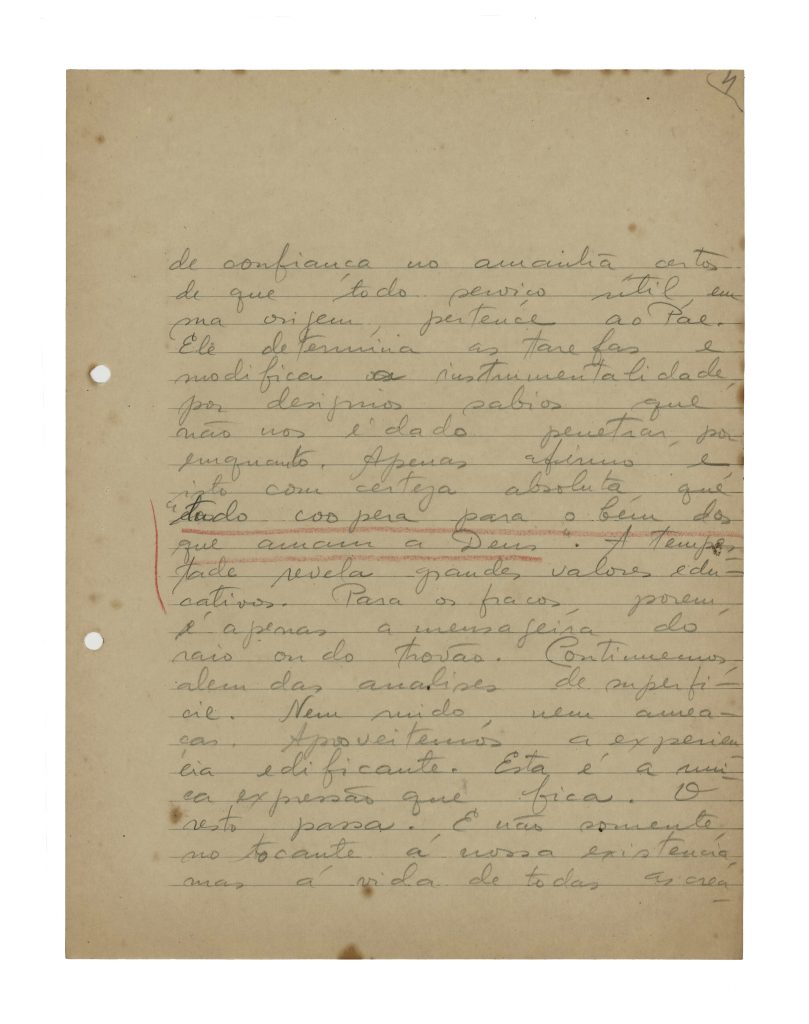 4
de confiança no amanhã certos
de que todo serviço útil, em
sua origem, pertence ao Pae.
Ele determina as tarefas e
modifica a instrumentalidade,
por designios sabios que
não nos é dado penetrar, por
emquanto. Apenas afirmo e
isto com certeza absoluta que
"tudo coopera para o bem dos
que amam a Deus". A tempes-
tade revela grandes valores edu-
cativos. Para os fracos, porem,
é apenas a mensageira do
raio ou do trovão. Continuemos,
alem das analises de superfi-
cie. Nem ruido, nem amea-
ças. Aproveitemos a experien
cia edificante. Esta é a uni-
ca expressão que fica. O
resto passa. E não somente
no tocante á nossa existencia
mas á vida de todas as crea-